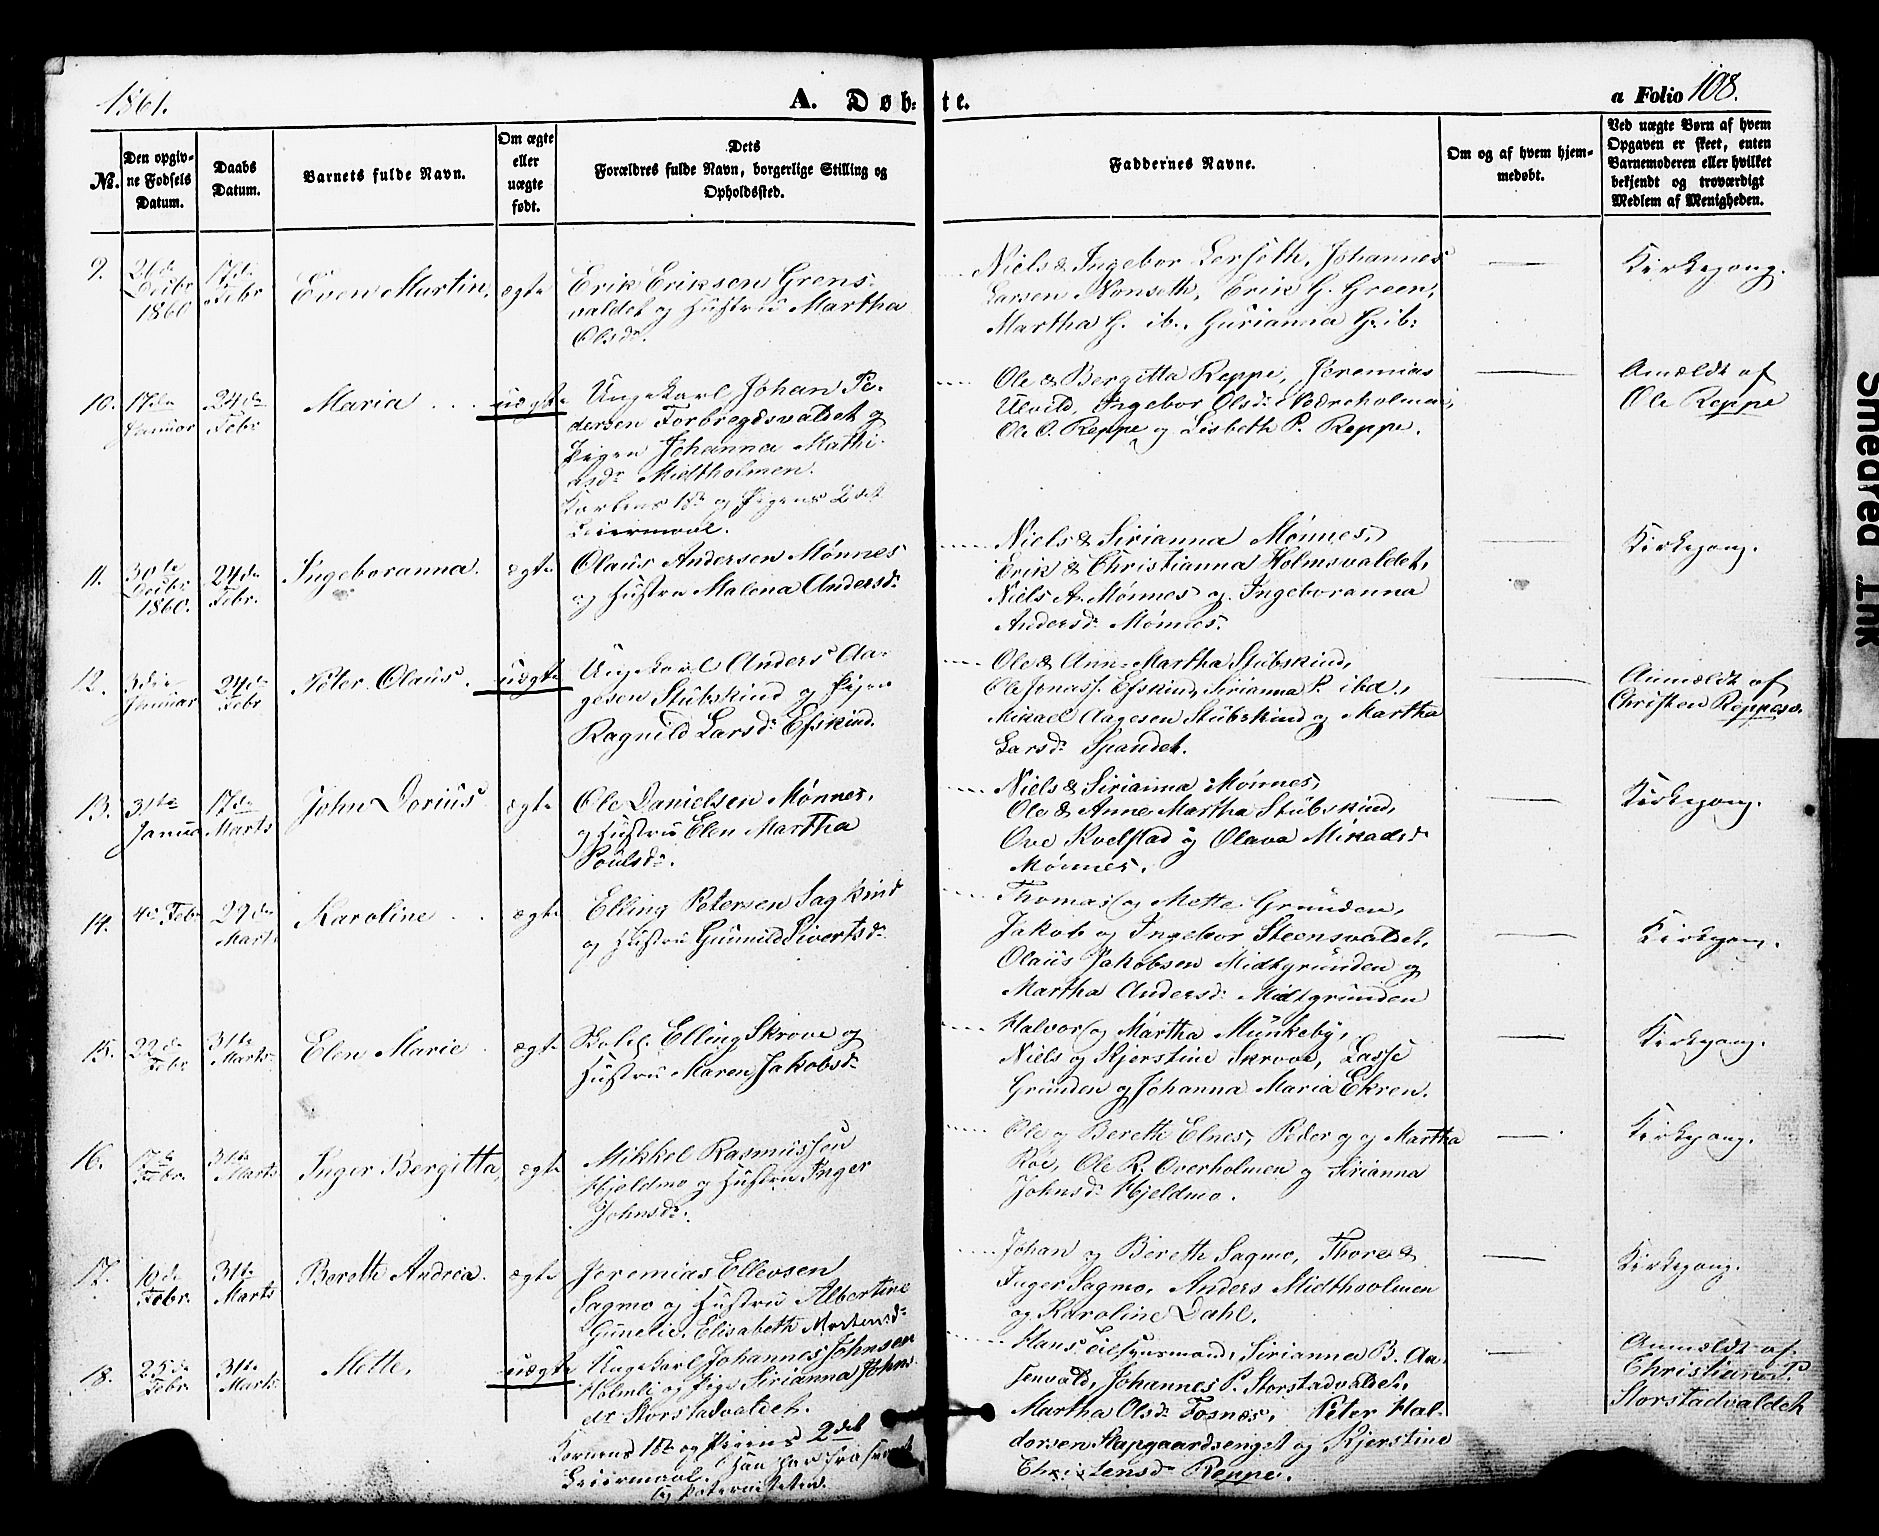 1861.
A. Døb-
te.
a Folio 108.
№.
Den opgiv-
ne Fødsels
Datum.
Daabs
Datum.
Barnets fulde Navn.
Om ægte
eller
uægte
født.
Dets
Forældres fulde Navn, borgerlige Stilling og
Opholdssted.
Faddernes Navne.
Om og af hvem hjem-
medøbt.
Ved uægte Børn af hvem
Opgaven er skeet, enten
Barnemoderen eller hvilket
bekjendt og troværdigt
Medlem af Menigheden.
9.
26de
Decbr
1860
17de
Febr
Even Martin.
ægte
Erik Eriksen Grens-
valdet og Hustru Martha
Olsdr.
Niels & Ingebor Lerfoth, Johannes
Larsen Nonseth, Erik G. Green,
Martha G. ib., Gurianna G. ib:
Kirkegang.
10.
17de
Januar
24de
Febr
Maria
uægte
Ungekarl Johan Pe-
dersen Forbregdsvaldet og
Pigen Johanna Mathi-
asdr Midtholmen.
Karlens 1ste og Pigens 2det
Leiermaal.
Ole & Bergitta Reppe, Jeremias
Ulvild, Ingebor Olsdr Nedreholmen,
Ole O. Reppe og Lisbeth P. Reppe.
Anmeldt af
Ole Reppe
11.
30te
Decbr
1860.
24de
Febr.
Ingeboranna.
ægte
Olaus Andersen Mønnes
og Hustru Malena Andersdr
Niels & Sirianna Mønnes,
Erik & Christianna Holmsvaldet,
Niels A. Mønnes og Ingeboranna
Andersdr Mønnes.
Kirkegang.
12.
3die
Januar
24de
Febr
Peter Olaus.
uægte
Ungekarl Anders Aa-
gesen Stubskind og Pigen
Ragnild Larsdr Efskind.
Ole & Ann-Martha Stubskind,
Ole Jonass. Efskind, Sirianna P. ibd.,
Mikael Aagesen Stubskind og Martha
Larsdr Spandet.
Anmeldt af
Christen Reppesv.
13.
31te
Januar
17de
Marts
John Dorius
ægte
Ole Danielsen Mønnes,
og Hustru Elen Martha
Poulsdr.
Niels & Sirianna Mønnes,
Ole & Anne Martha Stubskind,
Ove Kvelstad og Olava Mikaelsdr
Mønnes.
Kirkegang.
14.
4de Febr
29de
Marts
Karoline
ægte
Elling Petersen Sagkind
og Hustru Gunnild Sivertsdr
Thomas og Mette Grunden,
Jakob og Ingebor Steensvaldet,
Olaus Jakobsen Midtgrunden og
Martha Andersdr Midtgrunden
Kirkegang.
15.
22de
Febr
31te
Marts
Elen Marie
ægte
Elling Skrove og
Hustru Maren Jakobsdr
Halvor og Martha Munkeby,
Niels og Kjerstine Skrove, Lasse
Grunden og Johanna Maria Ekren.
Kirkegang.
16.
17de
Febr.
31te
Marts
Inger Bergitta,
ægte
Mikkel Rasmussen
Hjeldmo og Hustru Inger
Johnsdr.
Ole og Bereth Elnes, Peder og Martha
Roe, Ole R. Overholmen og Sirianna
Johnsdr Hjeldmo.
Kirkegang.
17.
10de
Febr.
31te
Marts
Bereth Andrea.
ægte
Jeremias Ellevsen
Sagmo og Hustru Albertine
Gunelie Elisabeth Mortensdr
Johan og Bereth Sagmo, Thore &
Inger Sagmo, Anders Midthoolmen
og Karoline Dahl.
Kirkegang.
18.
25de
Febr.
31te
Marts
Mette,
uægte
Ungekarl Johannes Johnsen
Holmli og Pige Sirianna Johns-
dr Storstadvaldet.
Karlens 1ste og Pigens 2det
Leiermaal.
og Paterniteten.
Hans Leilfurmand, Sirianna B. Aa-
senvald, Johannes P. Storstadvaldet,
Martha Olsdr Fosnæs, Peter Hal-
dorsen Stapgaardsenget og Kjerstine
Christensdr Reppe.
Anmeldt af
Christian P.
Storstadvaldet
Smedred Ink